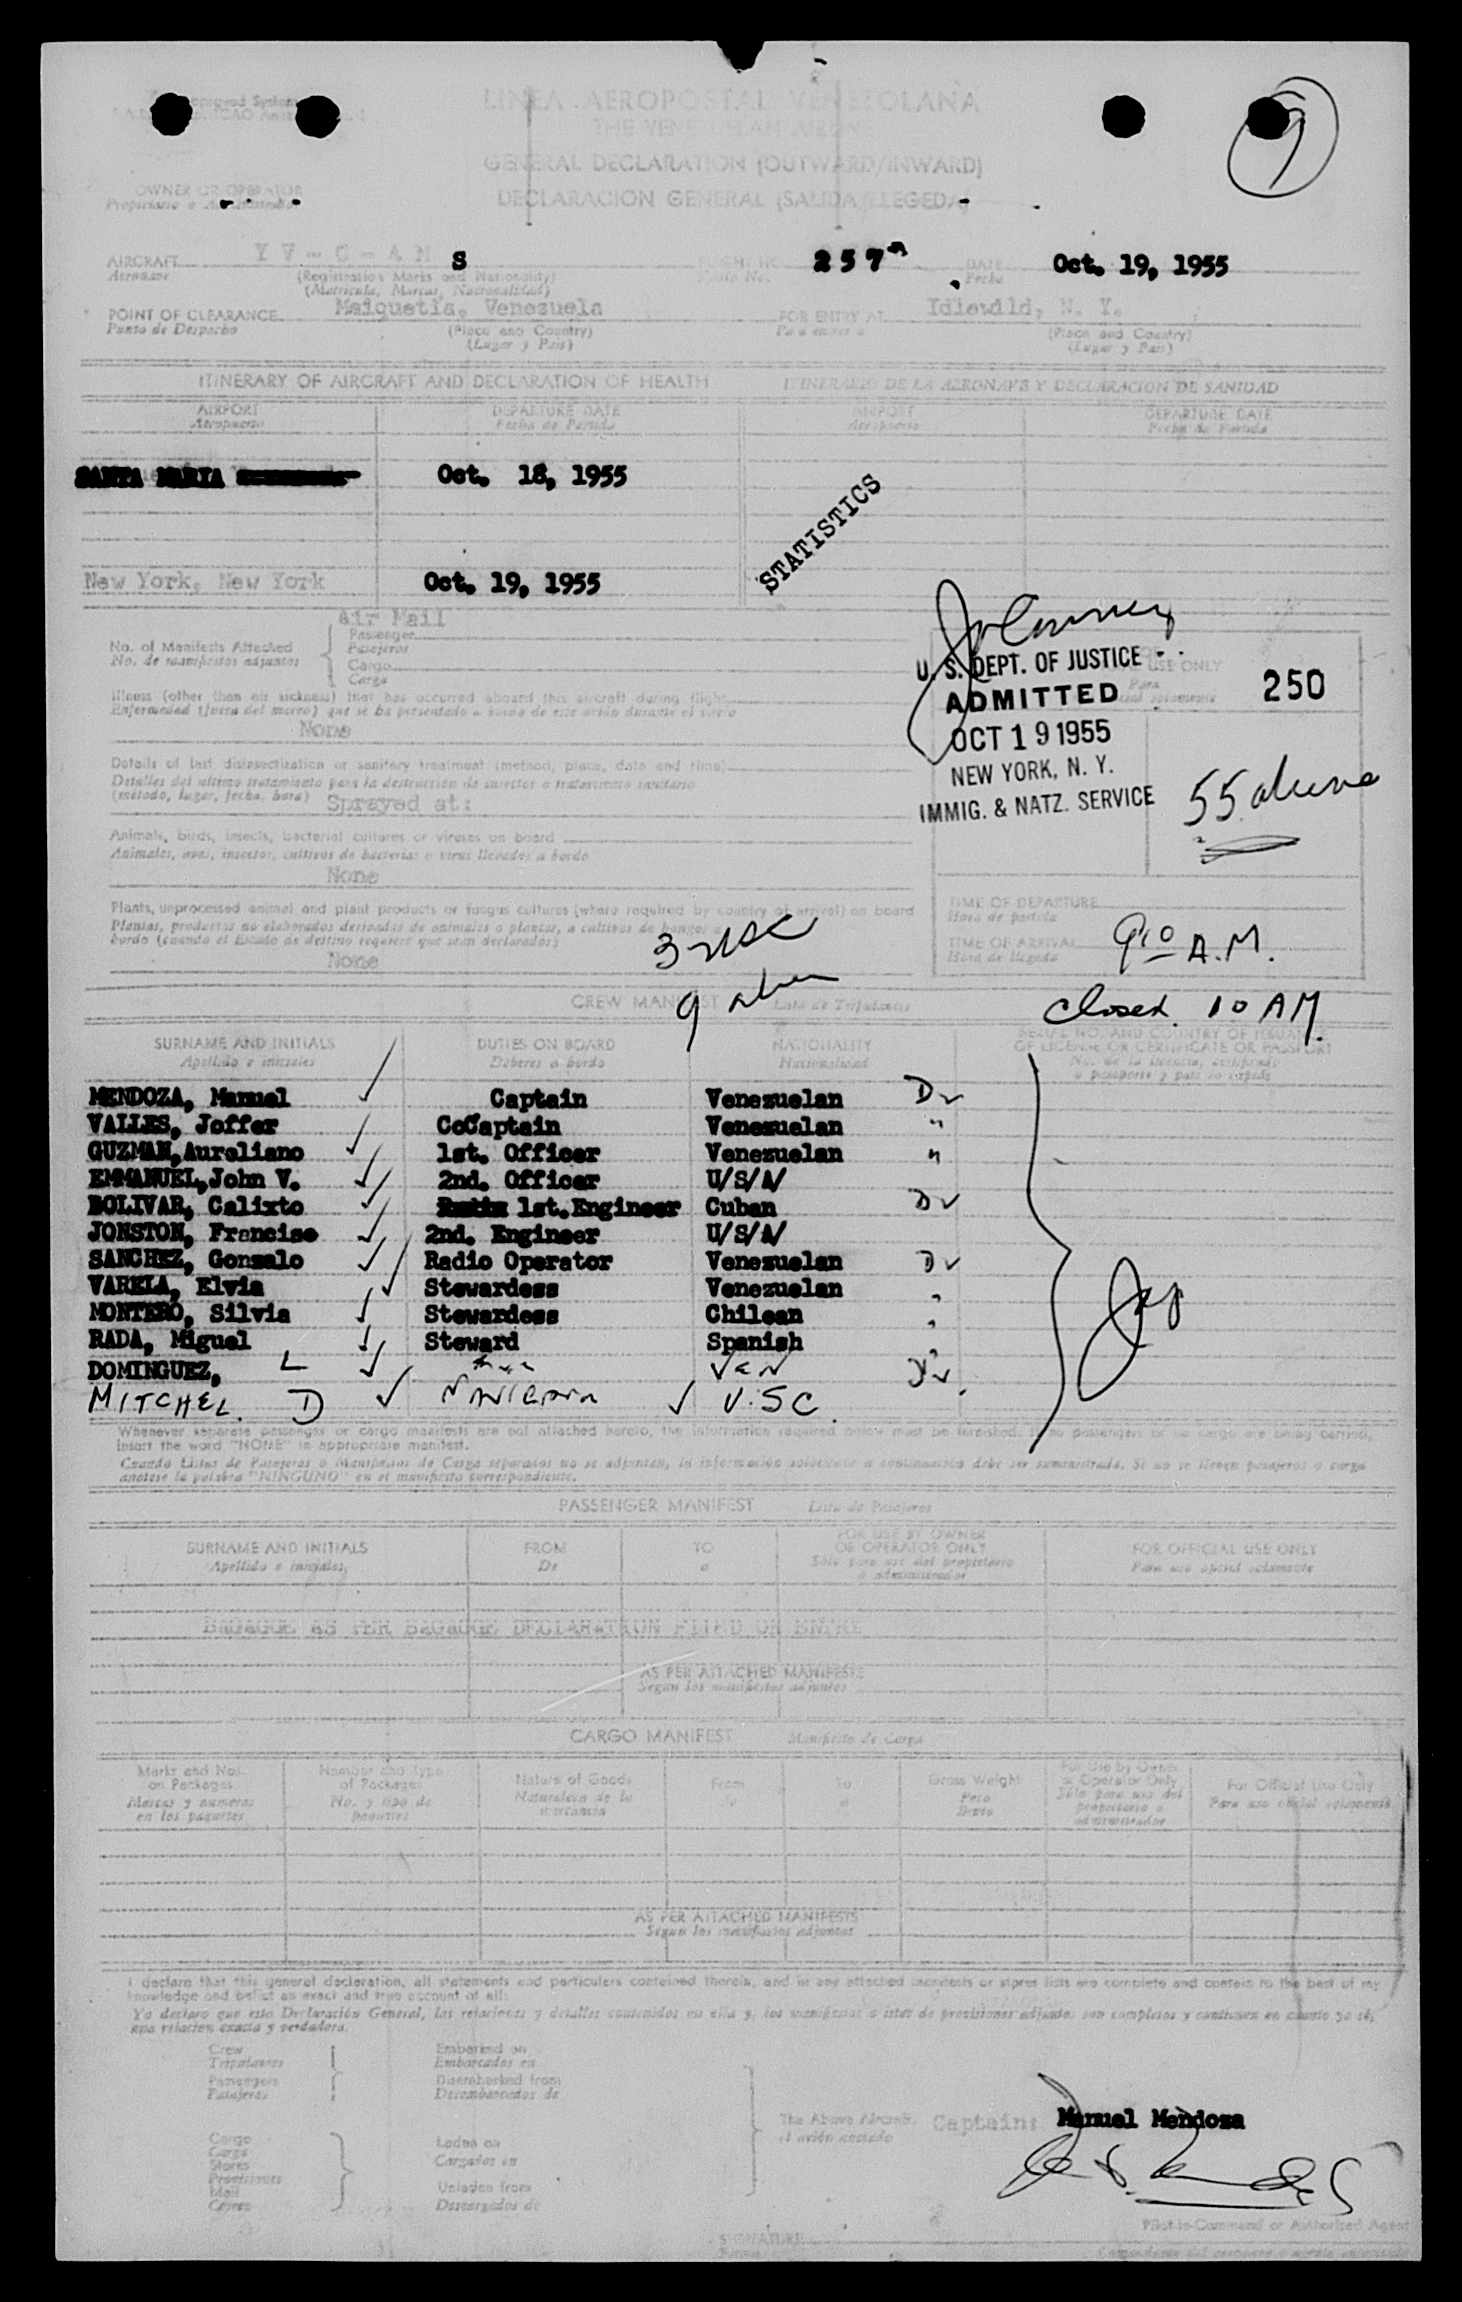 LINEA AEROPOSTAL VENEZOLANA
THE VENEZUELAN AIRLINE
GENERAL DECLARATION (OUTWARD/INWARD)
DECLARACION GENERAL (SALIDA/LLEGEDA)
9
OWNER OR OPERATOR
AIRCRAFT YV-C-AM S 257 DATE Oct. 19, 1955
Aeronave (Registration Marks and Nationality) Fecha
(Matricula, Marcas, Nacionalidad)
POINT OF CLEARANCE Maiquetia, Venezuela FOR ENTRY AT Idlewild, N. Y.
Punto de Despacho (Place and Country) Para entrar a (Place and Country)
(Lugar y Pais) (Lugar y Pais)
ITINERARY OF AIRCRAFT AND DECLARATION OF HEALTH ITINERARIO DE LA AERONAVE Y DECLARACION DE SANIDAD
AIRPORT DEPARTURE DATE AIRPORT DEPARTURE DATE
Aeropuerto Fecha de Partida Aeropuerto Fecha de Partida
SANTA MARIA Oct. 18, 1955
STATISTICS
New York, New York Oct. 19, 1955
Air Mail
Passenger
No. of Manifests Attached Pasajeros
No. de manifiestos adjuntos Cargo
Carga
U. S. DEPT. OF JUSTICE USE ONLY
ADMITTED 250
OCT 19 1955
NEW YORK, N. Y.
IMMIG. & NATZ. SERVICE
55 aliens
Illness (other than air sickness) that has occurred aboard this aircraft during flight
Enfermedad (fuera del mareo) que se ha presentado a bordo de este avión durante el vuelo
None
Details of last disinsectization or sanitary treatment (method, place, date and time)
Detalles del ultimo tratamiento para la destrucción de insectos o tratamiento sanitario
(método, lugar, fecha, hora) Sprayed at:
Animals, birds, insects, bacterial cultures or viruses on board
Animales, aves, insectos, cultivos de bacterias o virus llevados a bordo
None
Plants, unprocessed animal and plant products or fungus cultures (where required by country of arrival) on board
Plantas, productos no elaborados derivados de animales o plantas, a cultivos de hongos a
bordo (cuando el Estado de destino requiere que sean declarados)
None
TIME OF DEPARTURE
Hora de partida
TIME OF ARRIVAL 910 A.M.
Hora de llegada
3 USC
9 alien
CREW MANIFEST Lista de Tripulantes Closed 10 AM
SURNAME AND INITIALS DUTIES ON BOARD NATIONALITY SERIAL NO. AND COUNTRY OF ISSUANCE
Apellido e iniciales Deberes a bordo Nacionalidad OF LICENSE OR CERTIFICATE OR PASSPORT
MENDOZA, Manuel Captain Venezuelan D
VALLES, Joffer CoCaptain Venezuelan "
GUZMAN,Aureliano 1st. Officer Venezuelan "
EMMANUEL,John V. 2nd. Officer U/S/A/
BOLIVAR, Calixto 1st.Engineer Cuban D
JONSTON, Francisc 2nd. Engineer U/S/A/
SANCHEZ, Gonzalo Radio Operator Venezuelan D
VARELA, Elvia Stewardess Venezuelan "
MONTERO, Silvia Stewardess Chilean "
RADA, Miguel Steward Spanish "
DOMINGUEZ, L VEN
MITCHEL. D U.SC.
Whenever separate passenger or cargo manifests are not attached hereto, the information required below must be furnished. If no passengers or no cargo are being carried,
insert the word "NONE" in appropriate manifest.
Cuando Listas de Pasajeros o Manifiestos de Carga separados no se adjunten, la información solicitada a continuación debe ser suministrada. Si no se llevan pasajeros o carga
anótese la palabra "NINGUNO" en el manifiesto correspondiente.
PASSENGER MANIFEST Lista de Pasajeros
SURNAME AND INITIALS FROM TO FOR USE BY OWNER OR OPERATOR ONLY FOR OFFICIAL USE ONLY
Apellido e iniciales De a Sólo para uso del propietario o administrador Para uso oficial solamente
BAGAGGE AS PER BAGAGGE DECLARATION FILED ON ENTRE
AS PER ATTACHED MANIFESTS
Segun los manifiestos adjuntos
CARGO MANIFEST Manifiesto de Carga
Marks and Nos. on Packages Number and Type of Packages Nature of Goods From To Gross Weight For Use by Owner or Operator Only For Official Use Only
Marcas y numeros en los paquetes No. y tipo de paquetes Naturaleza de la mercancia De a Peso Bruto Sólo para uso del propietario o administrador Para uso oficial solamente
AS PER ATTACHED MANIFESTS
Segun los manifiestos adjuntos
I declare that this general declaration, all statements and particulars contained therein, and in any attached manifests or stores lists are complete and contain to the best of my
knowledge and belief an exact and true account of all:
Yo declaro que esta Declaración General, las relaciones y detalles contenidos en ella y los manifiestos o listas de provisiones adjuntos son completos y contienen en cuanto yo sé,
una relación exacta y verdadera.
Crew Embarked on
Tripulantes Embarcados en
Passengers Disembarked from
Pasajeros Desembarcados de
The Above Aircraft. Captain: Manuel Mendoza
el avión anotado
Cargo Laden on
Carga Cargados en
Stores
Provisiones
Mail Unladen from
Correo Descargados de
Pilot-in-Command or Authorized Agent
SIGNATURE